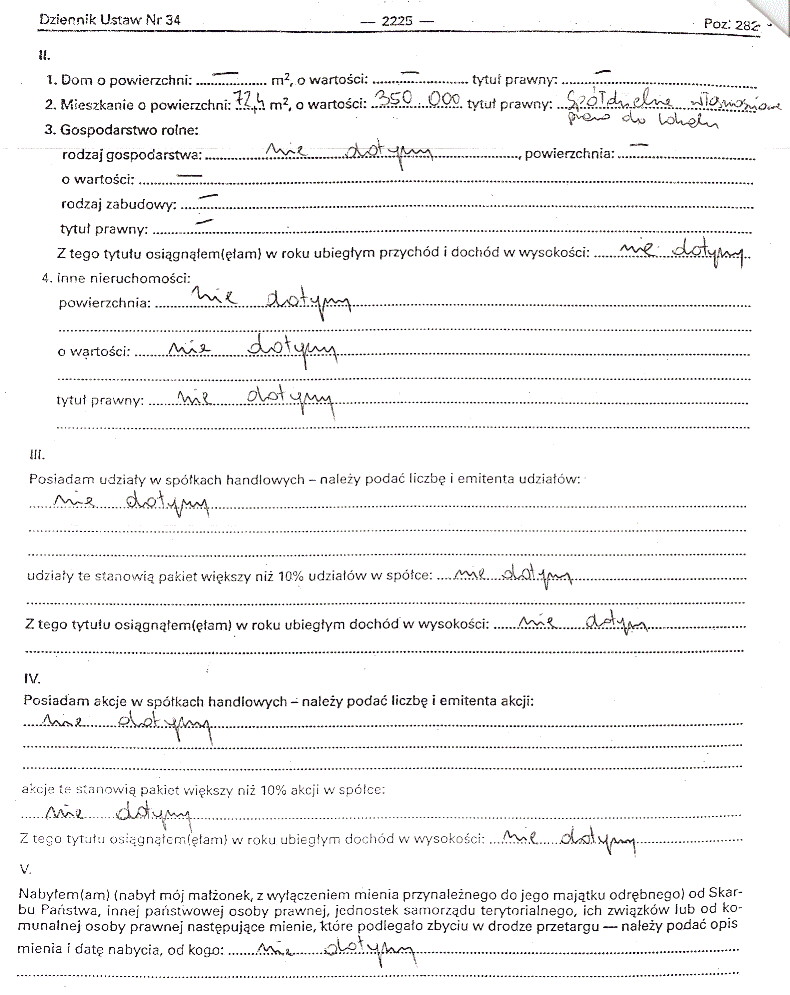 Dziennik Ustaw Nr 34 — 2225 — Poz. 282
II.
1. Dom o powierzchni: ..... — ..... m², o wartości: ..... — ..... tytuł prawny: ..... — .....
2. Mieszkanie o powierzchni: 72,4 m², o wartości: 350 000 tytuł prawny: Spółdzielcze własnościowe
prawo do lokalu
3. Gospodarstwo rolne:
rodzaj gospodarstwa: nie dotyczy, powierzchnia: —
o wartości: —
rodzaj zabudowy: —
tytuł prawny: —
Z tego tytułu osiągnąłem(ęłam) w roku ubiegłym przychód i dochód w wysokości: nie dotyczy
4. inne nieruchomości:
powierzchnia: nie dotyczy
o wartości: nie dotyczy
tytuł prawny: nie dotyczy
III.
Posiadam udziały w spółkach handlowych – należy podać liczbę i emitenta udziałów:
nie dotyczy
udziały te stanowią pakiet większy niż 10% udziałów w spółce: nie dotyczy
Z tego tytułu osiągnąłem(ęłam) w roku ubiegłym dochód w wysokości: nie dotyczy
IV.
Posiadam akcje w spółkach handlowych – należy podać liczbę i emitenta akcji:
nie dotyczy
akcje te stanowią pakiet większy niż 10% akcji w spółce:
nie dotyczy
Z tego tytułu osiągnąłem(ęłam) w roku ubiegłym dochód w wysokości: nie dotyczy
V.
Nabyłem(am) (nabył mój małżonek, z wyłączeniem mienia przynależnego do jego majątku odrębnego) od Skar-
bu Państwa, innej państwowej osoby prawnej, jednostek samorządu terytorialnego, ich związków lub od ko-
munalnej osoby prawnej następujące mienie, które podlegało zbyciu w drodze przetargu — należy podać opis
mienia i datę nabycia, od kogo: nie dotyczy